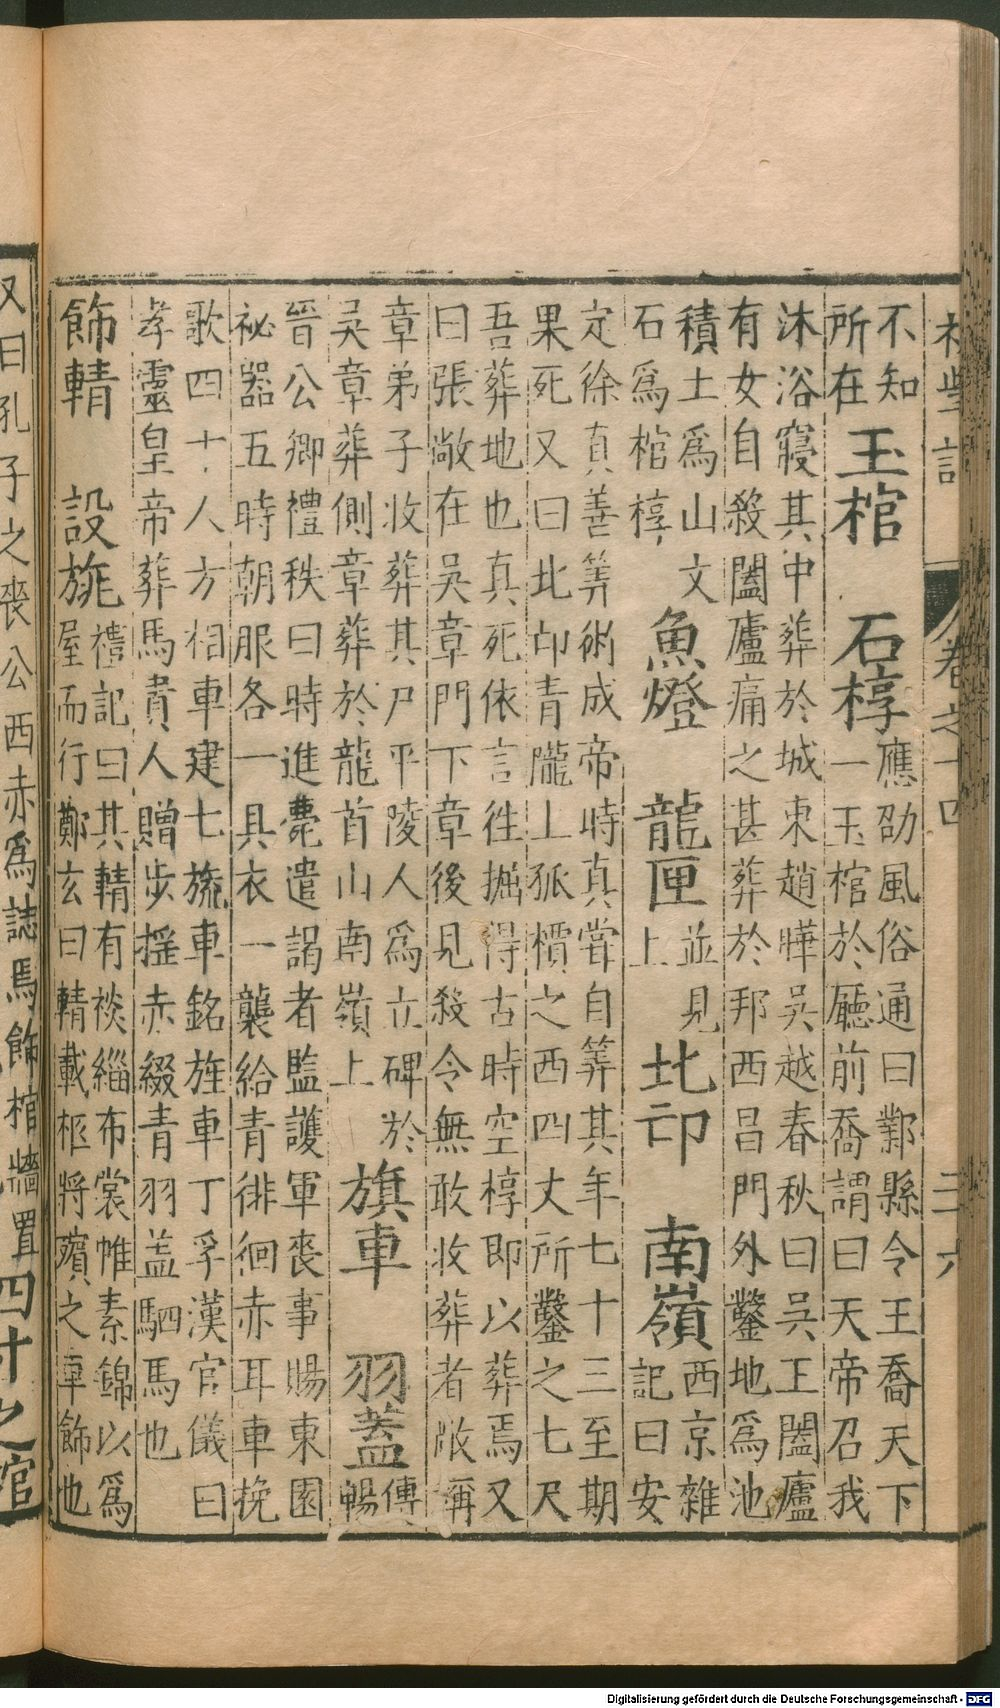 初學記 卷之十四 三六
不知
所在
玉棺 石椁
應劭風俗通曰鄴縣令王喬天下
一玉棺於廳前喬謂曰天帝召我
沐浴寢其中葬於城東趙曄吳越春秋曰吳王闔廬
有女自殺闔廬痛之甚葬於邦西昌門外鑿地爲池
積土爲山文
石爲棺椁
魚燈 龍匣
並見
上
北邙 南嶺
西京雜
記曰安
定徐真善筭術成帝時真甞自筭其年七十三至期
果死又曰北邙青隴上孤檟之西四丈所鑿之七尺
吾葬地也真死依言徃掘得古時空椁即以葬焉又
曰張敞在吳章門下章後見殺令無敢收葬者敞稱
章弟子收葬其尸平陵人爲立碑於
吳章葬側章葬於龍首山南嶺上
旗車 羽蓋
傅暢
晉公卿禮秩曰時進薨遣謁者監護軍喪事賜東園
祕器五時朝服各一具衣一襲給青徘徊赤耳車挽
歌四十人方相車建七旒車銘旌車丁孚漢官儀曰
孝靈皇帝葬馬貴人贈步揺赤綴青羽盖駟馬也
飾輤 設旐
禮記曰其輤有裧緇布裳帷素錦以爲
屋而行鄭玄曰輤載柩將殯之車飾也
又曰孔子之喪公西赤爲誌焉飾棺牆置
四寸之棺
Digitalisierung gefördert durch die Deutsche Forschungsgemeinschaft - DFG